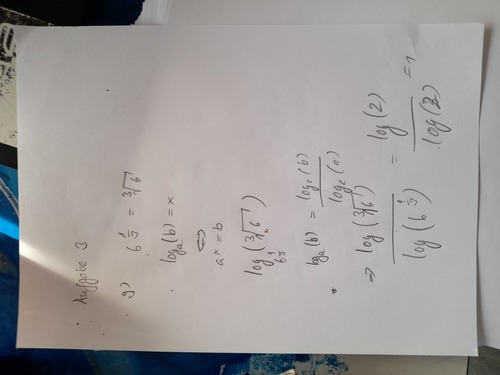 Aufgabe 3
g) 6^(1/3) = ∛6
log_a(b) = x
⇔
a^x = b
log_(6^(1/3))(∛6)
log_a(b) = log_c(b) / log_c(a)
→ log(∛6) / log(6^(1/3)) = log(2) / log(2) = 1